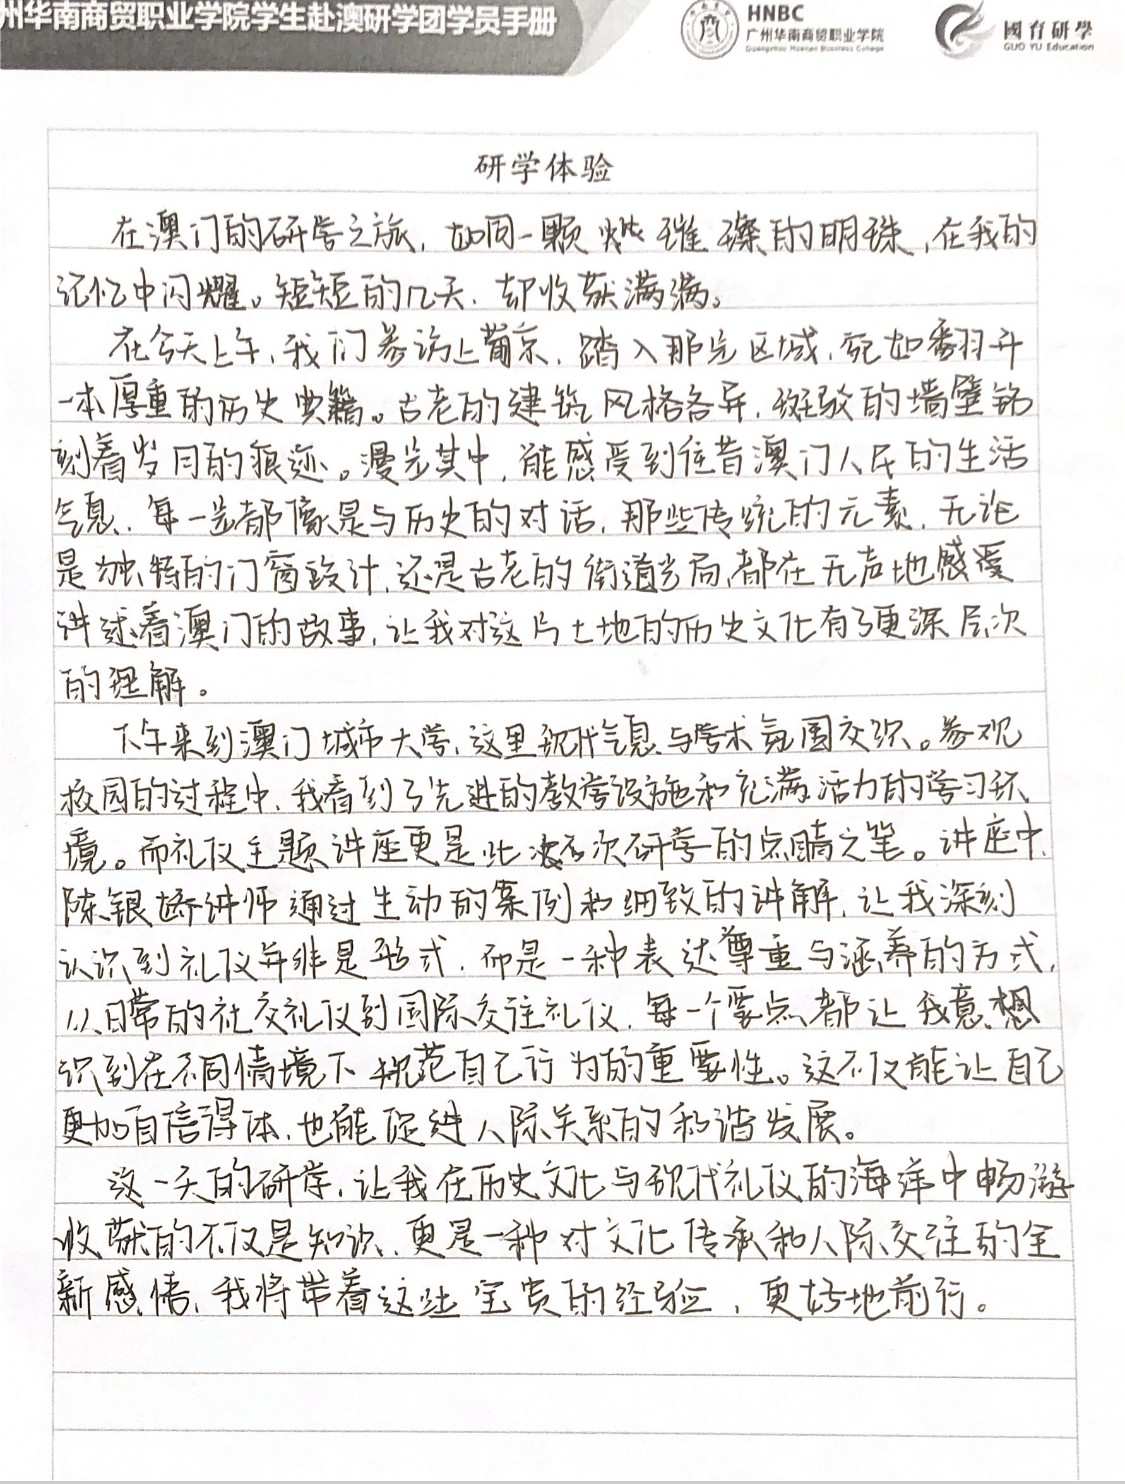 州华南商贸职业学院学生赴澳研学团学员手册
HNBC
广州华南商贸职业学院
Guangzhou Huanan Business College
國育研學
GUO YU Education
研学体验
在澳门的研学之旅，如同一颗璀璨的明珠，在我的
记忆中闪耀。短短的几天，却收获满满。
在今天上午，我们参访上葡京，踏入那片区域，宛如翻开
一本厚重的历史典籍。古老的建筑风格各异，斑驳的墙壁铭
刻着岁月的痕迹。漫步其中，能感受到往昔澳门人民的生活
气息，每一步都像是与历史的对话，那些传统的元素，无论
是独特的门窗设计，还是古老的街道布局，都在无声地感受
讲述着澳门的故事，让我对这片土地的历史文化有了更深层次
的理解。
下午来到澳门城市大学，这里现代气息与学术氛围交织。参观
校园的过程中，我看到了先进的教学设施和充满活力的学习环
境。而礼仪主题讲座更是此次研学的点睛之笔。讲座中，
陈银娇讲师通过生动的案例和细致的讲解，让我深刻
认识到礼仪并非是形式，而是一种表达尊重与涵养的方式，
从日常的社交礼仪到国际交往礼仪，每一个要点都让我意想
识到在不同情境下规范自己行为的重要性。这不仅能让自己
更加自信得体，也能促进人际关系的和谐发展。
这一天的研学，让我在历史文化与现代礼仪的海洋中畅游
收获的不仅是知识，更是一种对文化传承和人际交往的全
新感悟，我将带着这些宝贵的经验，更好地前行。